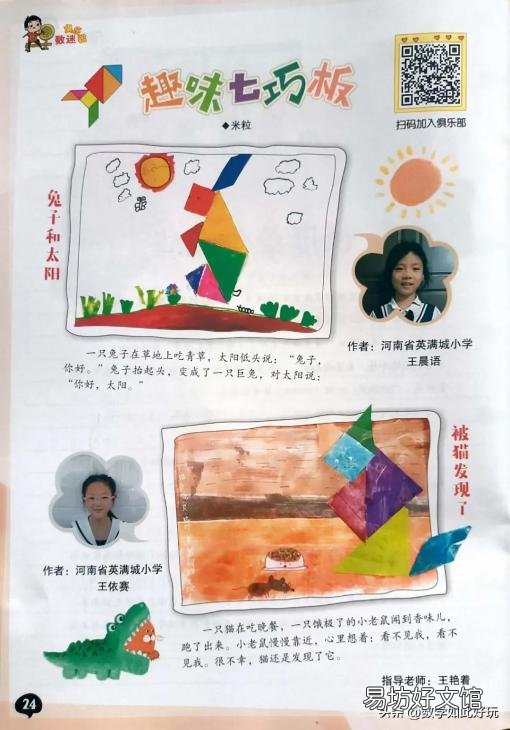 快乐
数迷
趣味七巧板
◆米粒
扫码加入俱乐部
兔子和太阳
作者：河南省英满城小学
王晨语
一只兔子在草地上吃青草，太阳低头说：“兔子，
你好。”兔子抬起头，变成了一只巨兔，对太阳说：
“你好，太阳。”
被猫发现了
作者：河南省英满城小学
王依赛
一只猫在吃晚餐，一只饿极了的小老鼠闻到香味儿，
跑了出来。小老鼠慢慢靠近，心里想着：看不见我，看不
见我。很不幸，猫还是发现了它。
指导老师：王艳着
24
易坊好文馆
头条 @数学如此好玩